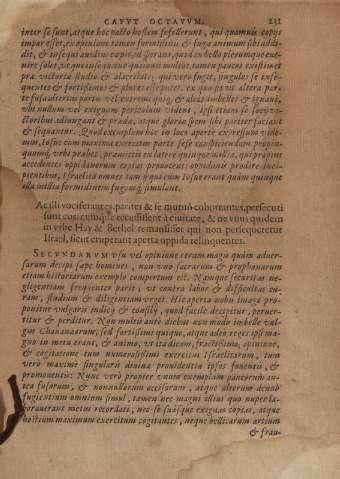 CAPVT OCTAVVM. 231
inter se sunt, atque hoc pacto hostem fefellerunt, qui quamuis copijs
impar esset, ex opinione tamen formidinis & fugæ animum sibi addi-
dit, & insequi audito capit,
nire solet, vt qui insequuntur quamuis multos, tamen paucos existiment
præ victoriæ studio & alacritate; qui verò fugit, singulos se inse-
quentes & fortissimos & plures esse putet. ex quo fit vt altera par-
te fusa alterius partis vel extremi quiq, & aliàs imbelles & ignaui,
vbi nullum vel exiguum periculum vident, ipsi etiam se socijs vi-
ctoribus adiungant & prædæ, atque gloriæ spem sibi pariter faciant
& sequantur. Quod exemplum hoc in loco apertè expressum vide-
mus, Iosue cum maxima exercitus parte sese conspiciendum propin-
quumq, vrbi præbet, præmissis ex latere quinque millia, qui propius
accedentes oppidanorum copias prouocent: oppidanis prodire inci-
pientibus, Israelita omnes tam ij qui cum Iosue erant quàm quinque
illa millia formidinem fugamq, simulant.
At illi vociferantes pariter & se mutuò cohortantes, persecuti
sunt eos: cumque recessissent à ciuitate, & ne vnus quidem
in vrbe Hay & Bethel remansisset qui non persequeretur
Israel, sicut eruperant aperta oppida relinquentes.
SECVNDARVM vsu vel opinione rerum magis quàm aduer-
sarum decipi sæpe homines, non vno sacrarum & prophanarum
etiam historiarum exemplo compertum est. Namque securitas ne-
gligentiam frequenter parit, vt contra labor & difficultas cu-
ram, studium & diligentiam vrget. Hic aperta nobis imago pro-
ponitur vulgaris indicij & consilij, quod facilè decipitur, peruer-
titur & perditur. Non multis antè diebus non modò imbelle vul-
gus Chananæorum, sed fortissimi quique, atque adeò reges ipsi ma-
gno in metu erant, & animo, vt ita dicam, fractissimo, opinione,
& cogitatione tum numerosissimi exercitus Israelitarum, tum
verò maximè singularis diuinæ prouidentiæ ipsos fouentis, &
promouentis: Nunc verò propter vnum exemplum paucorum an-
tea fusorum, & nonnullorum occisorum, atque alterum denuò
fugientium omnium simul, tamen nec magni illius quo nuper la-
borauerant metus recordati, nec se suásque exiguas copias, atque
hostium maximum exercitum cogitantes, neque bellicarum artium
& frau-